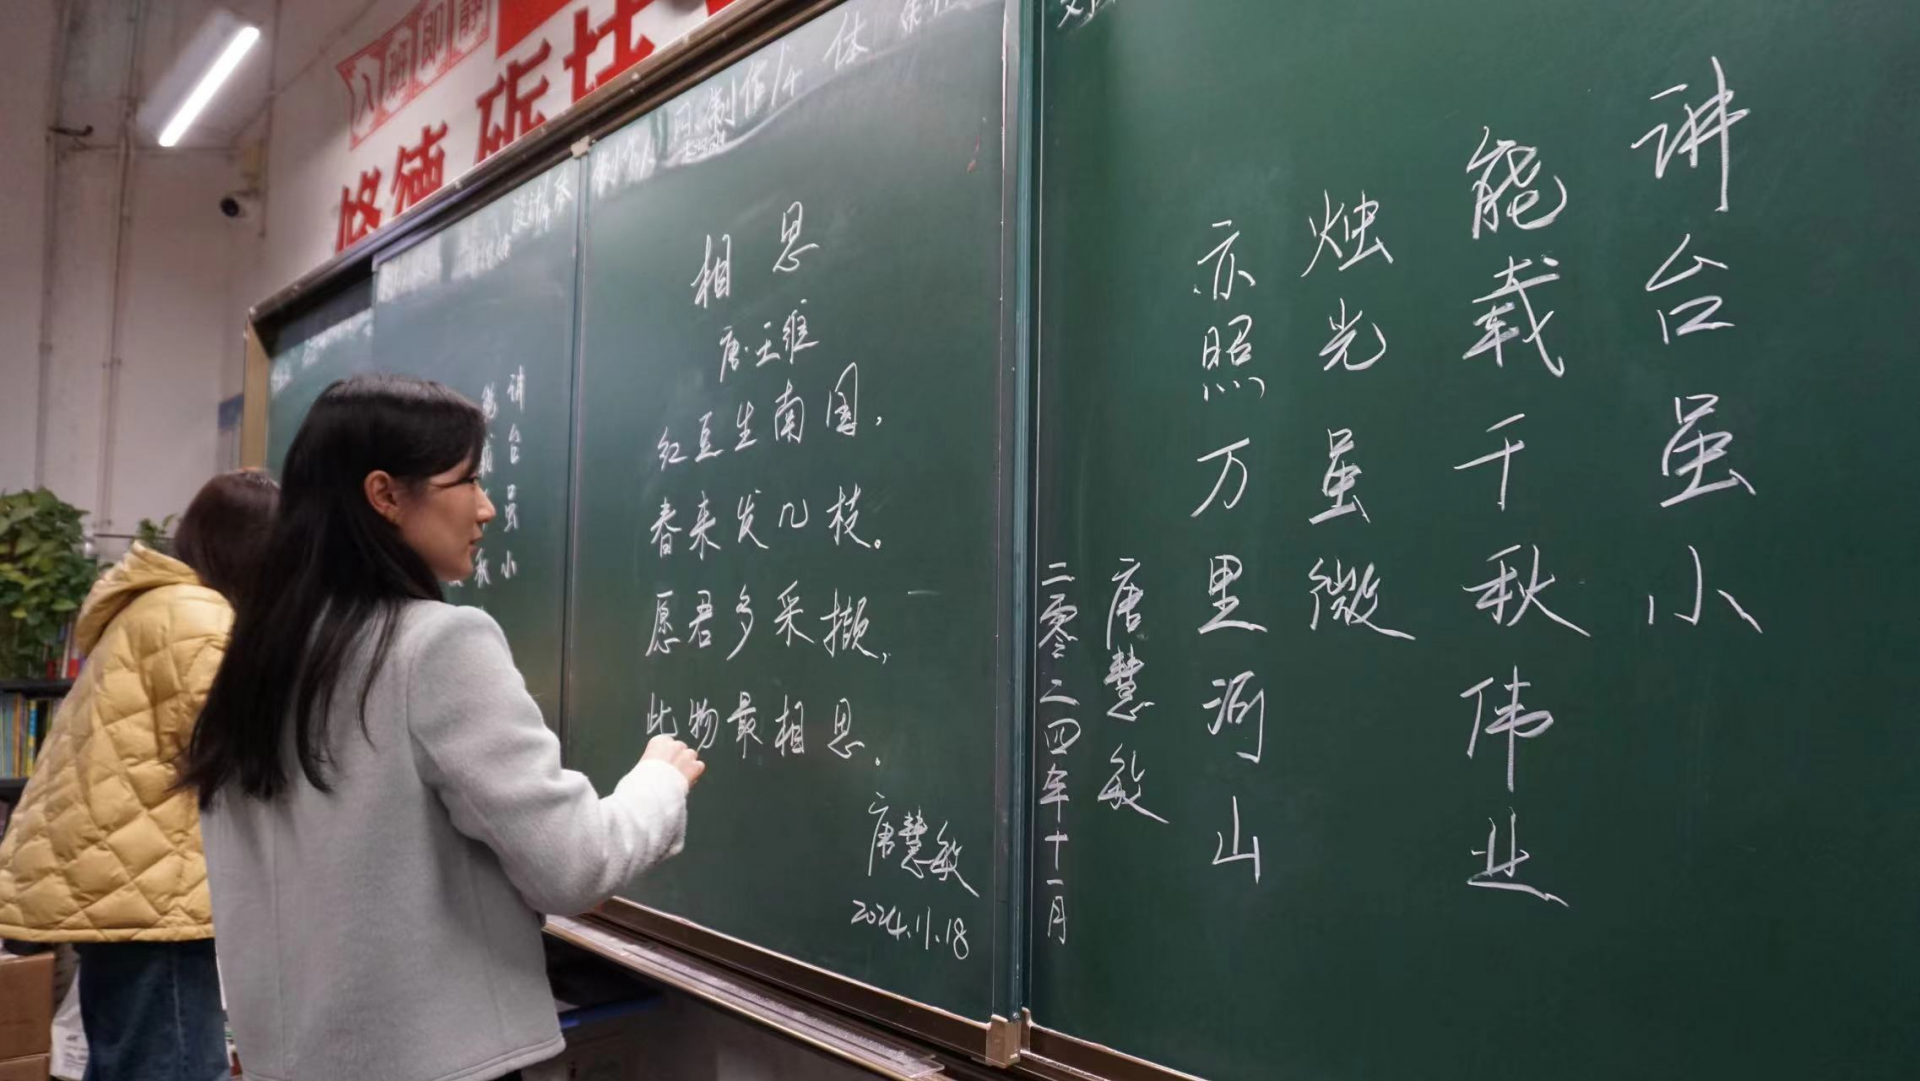 入班即静
修德 砺技
相思
唐·王维
红豆生南国，
春来发几枝。
愿君多采撷，
此物最相思。
唐慧敏
2024.11.18
讲台虽小
能载千秋伟业
烛光虽微
亦照万里河山
唐慧敏
二零二四年十一月
讲台虽小